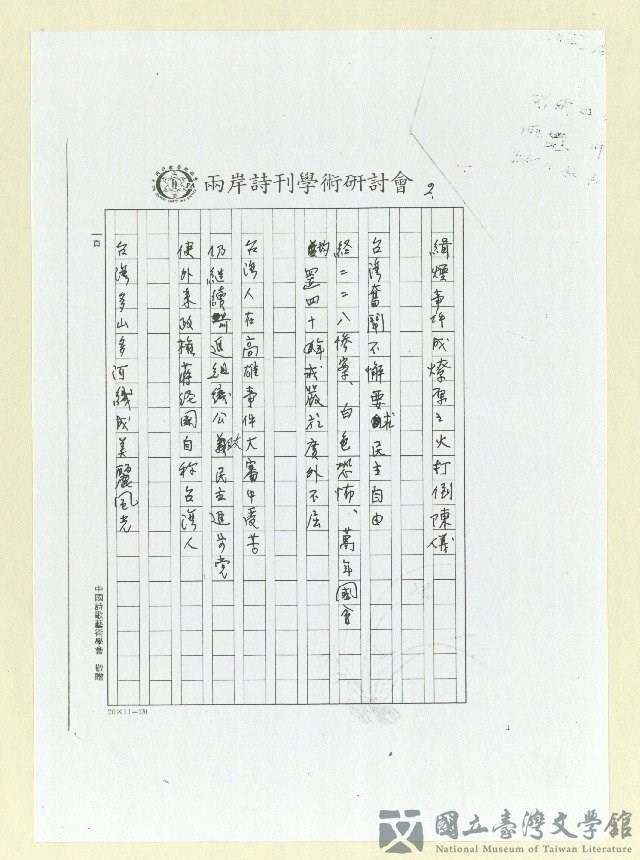 兩岸詩刊學術研討會
2.
緝煙事件成燎原之火打倒陳儀
台灣奮鬪不懈要求民主自由
經二二八慘案、白色恐怖、萬年國會
罷四十餘戒嚴於廣外不屈
台灣人在高雄事件大審中受苦
仍繼續前進組織公政民主進步党
使外來政権蔣経國自称台湾人
台灣多山多河織成美麗風光
一頁
中國詩歌藝術學會 敬贈
20×11=220
國立臺灣文學館
National Museum of Taiwan Literature